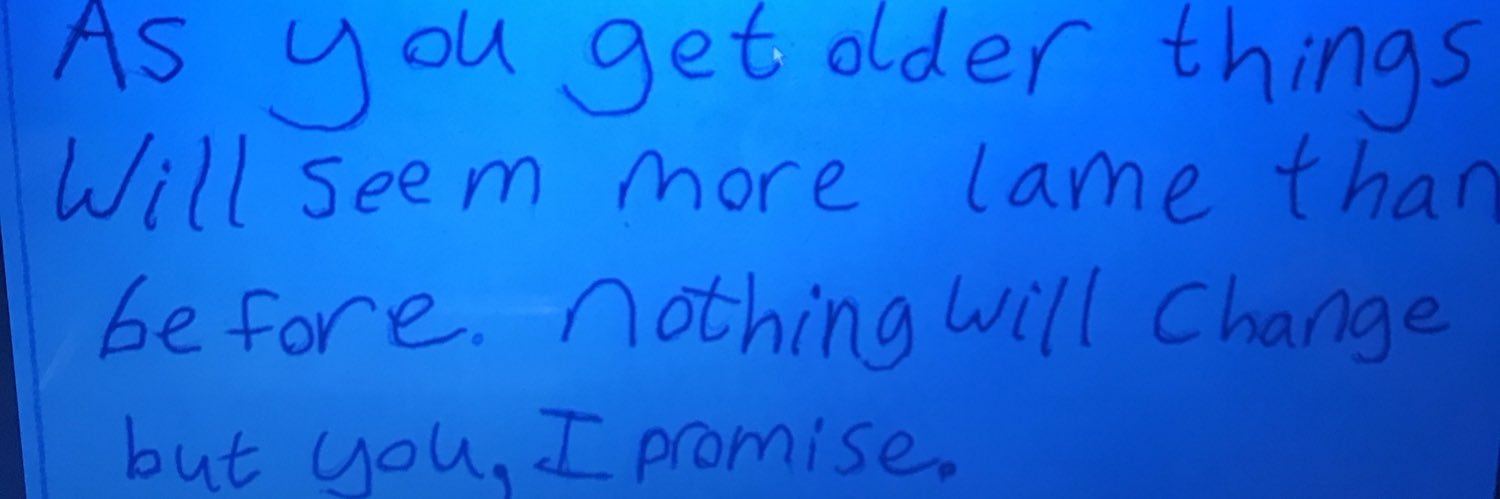 As you get older things
Will seem more lame than
before. nothing will Change
but you, I promise.